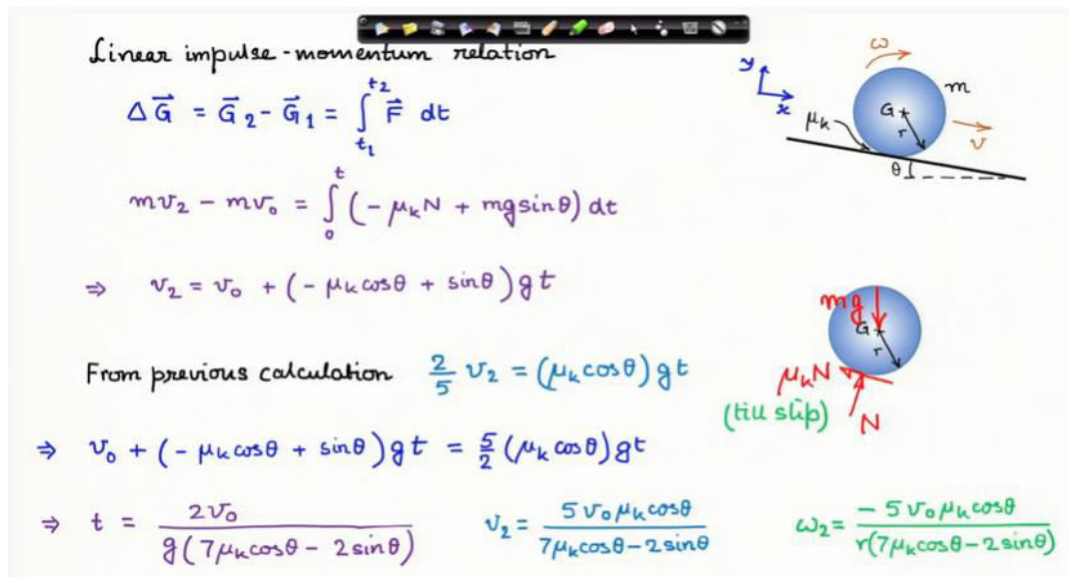 Linear impulse-momentum relation
ΔG⃗ = G⃗₂ - G⃗₁ = ∫_{t₁}^{t₂} F⃗ dt
mv₂ - mv₀ = ∫₀^t (-μₖN + mg sinθ) dt
⇒ v₂ = v₀ + (-μₖcosθ + sinθ) g t
From previous calculation 2/5 v₂ = (μₖcosθ) g t
⇒ v₀ + (-μₖcosθ + sinθ) g t = 5/2 (μₖcosθ) g t
⇒ t = 2v₀ / g(7μₖcosθ - 2sinθ)
v₂ = 5v₀μₖcosθ / 7μₖcosθ - 2sinθ
ω₂ = -5v₀μₖcosθ / r(7μₖcosθ - 2sinθ)
y
x
ω
m
G
r
μₖ
v
θ
mg
G
r
μₖN
(till slip)
N